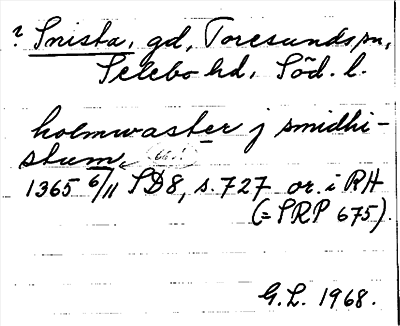 ? Snista, gd, Toresunds sn,
Selebo hd, Söd. l.
holmwaster j smidhi-
stum
1365 6/11 SD8, s. 727 or. i RH
(= SRP 675).
G.L. 1968.